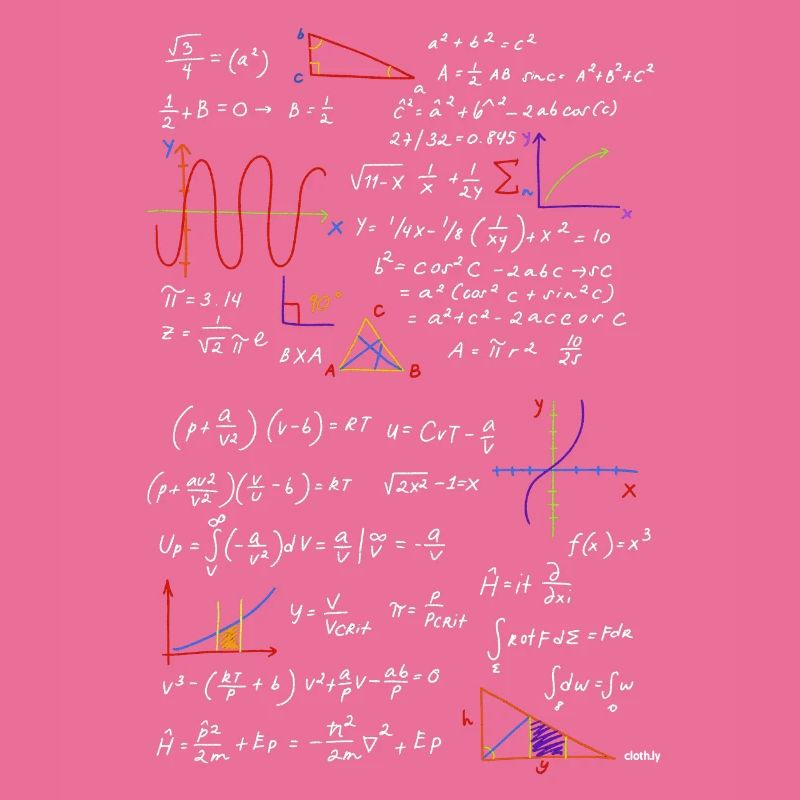 √3/4 = (a²)
b
c
a
a² + b² = c²
A = 1/2 AB sin c = A² + B² + C²
1/2 + B = 0 → B = 1/2
ĉ² = â² + b̂² - 2ab cos(c)
27/32 = 0.845
y
x
Y
X
√11-x 1/x + 1/2y Σ n
Y = 1/4x - 1/8 (1/xy) + x² = 10
b² = cos² C - 2abc → sc
= a² (cos² c + sin² c)
= a² + c² - 2acc os C
π = 3.14
90°
z = 1/√2π e
BXA
C
A
B
A = πr2 10/25
(p + a/v2) (v-b) = RT
u = CvT - a/v
y
x
(p + av2/v2)(v/u - b) = RT
√2x² - 1 = x
Up = ∫v∞ (-a/v²)dV = a/v |v∞ = -a/v
f(x) = x³
Ĥ = it ∂/∂xi
y = V/VCRit
π = P/PCRit
∫Σ Rot F dΣ = Fdr
v³ - (RT/P + b) v² + a/p v - ab/p = 0
∫8 dw = ∫0 w
h
y
Ĥ = p̂2/2m + Ep = -ħ²/2m ∇² + Ep
cloth.ly